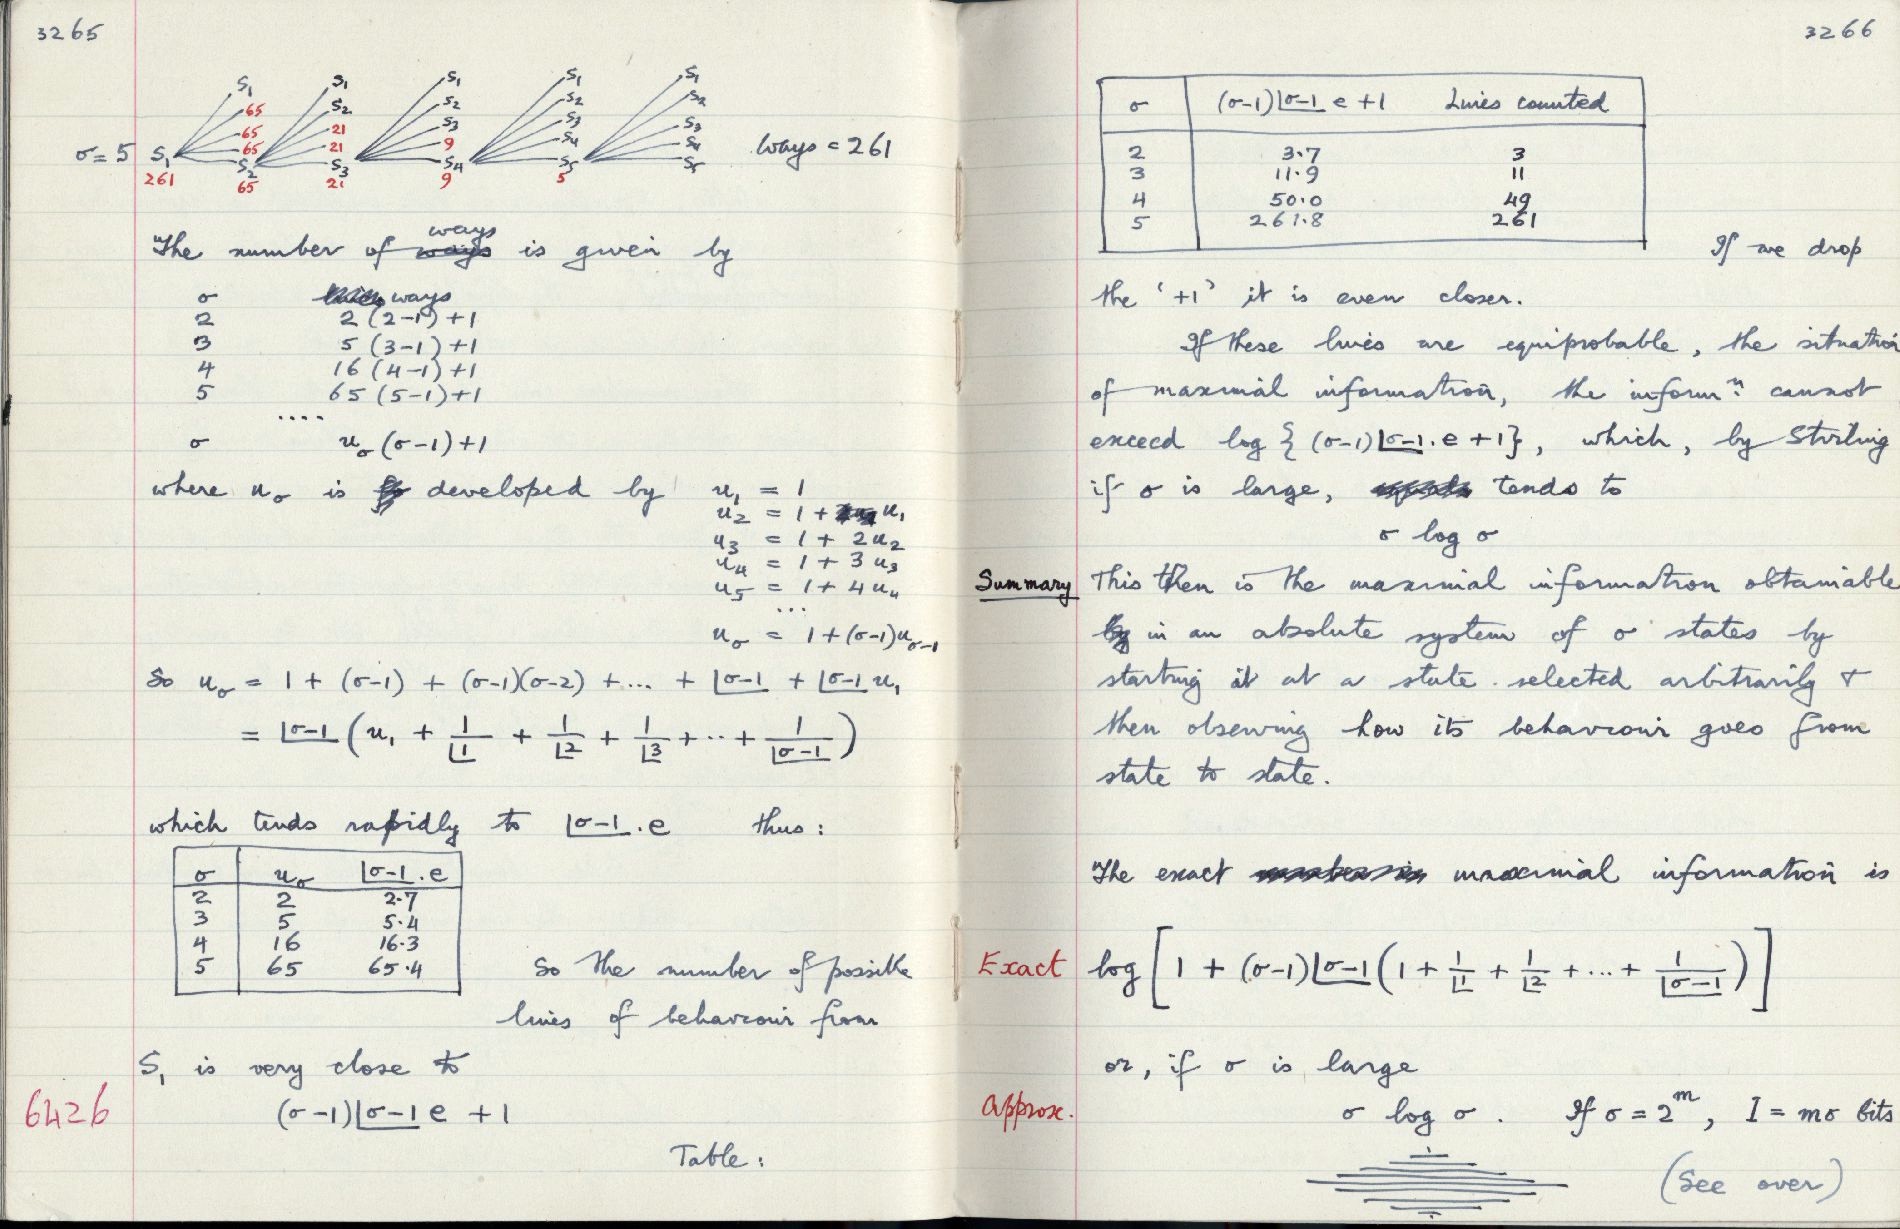 3265
S₁ S₁ S₁ S₁ S₁
65 S₂ S₂ S₂ S₂
65 21 S₃ S₃ S₃
65 21 9 S₄ S₄
σ = 5 S₁ S₂ S₃ S₄ S₅ S₅ ways = 261
261 65 21 9 5
The number of ways is given by
σ ways
2 2 (2-1) +1
3 5 (3-1) +1
4 16 (4-1) +1
5 65 (5-1) +1
....
σ u_σ (σ-1) +1
where u_σ is developed by u₁ = 1
u₂ = 1 + u₁
u₃ = 1 + 2u₂
u₄ = 1 + 3u₃
u₅ = 1 + 4u₄
...
u_σ = 1 + (σ-1)u_σ-1
So u_σ = 1 + (σ-1) + (σ-1)(σ-2) + ... + |σ-1 + |σ-1 u₁
= |σ-1 (u₁ + 1/|1 + 1/|2 + 1/|3 + ... + 1/|σ-1)
which tends rapidly to |σ-1 . e thus :
σ u_σ |σ-1 . e
2 2 2·7
3 5 5·4
4 16 16·3
5 65 65·4
So the number of possible
lines of behaviour from
S₁ is very close to
6426 (σ-1)|σ-1 e +1
Table :
3266
σ (σ-1)|σ-1 e +1 Lines counted
2 3·7 3
3 11·9 11
4 50·0 49
5 261·8 261
If we drop
the '+1' it is even closer.
If these lines are equiprobable, the situation
of maximal information, the informⁿ cannot
exceed log {(σ-1)|σ-1 . e +1}, which, by Stirling
if σ is large, tends to
σ log σ
Summary This then is the maximal information obtainable
in an absolute system of σ states by
starting it at a state selected arbitrarily &
then observing how its behaviour goes from
state to state.
The exact maximal information is
Exact log [1 + (σ-1)|σ-1 (1 + 1/|1 + 1/|2 + ... + 1/|σ-1)]
or, if σ is large
Approx. σ log σ . If σ = 2ᵐ, I = mσ bits
(See over)